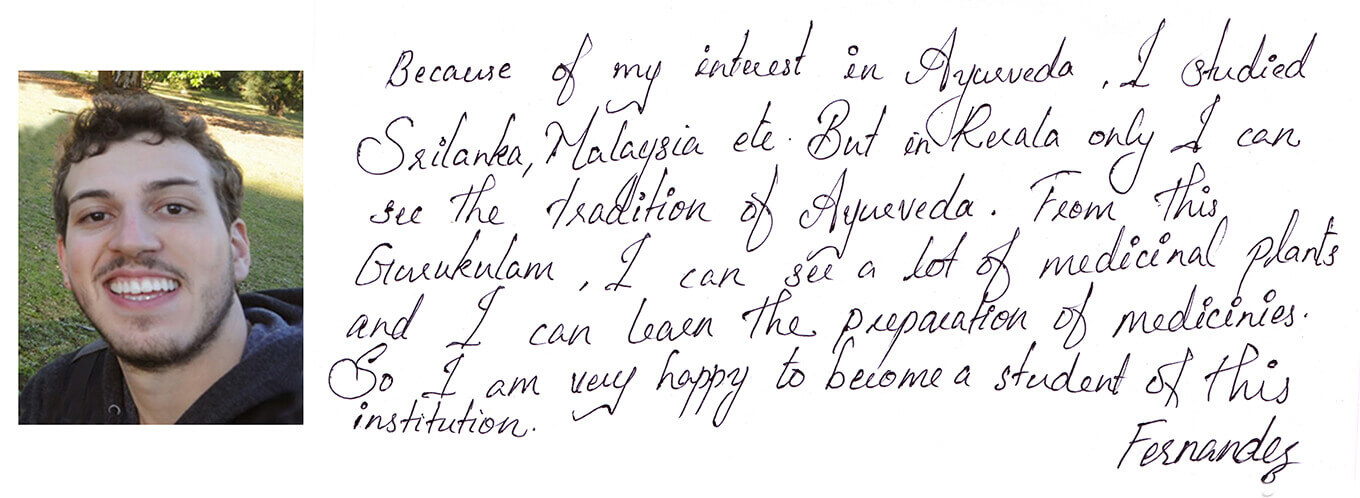 Because of my interest in Ayurveda, I studied
Srilanka, Malaysia etc. But in Kerala only I can
see the tradition of Ayurveda. From this
Gurukulam, I can see a lot of medicinal plants
and I can learn the preparation of medicinies.
So I am very happy to become a student of this
institution.
Fernandez